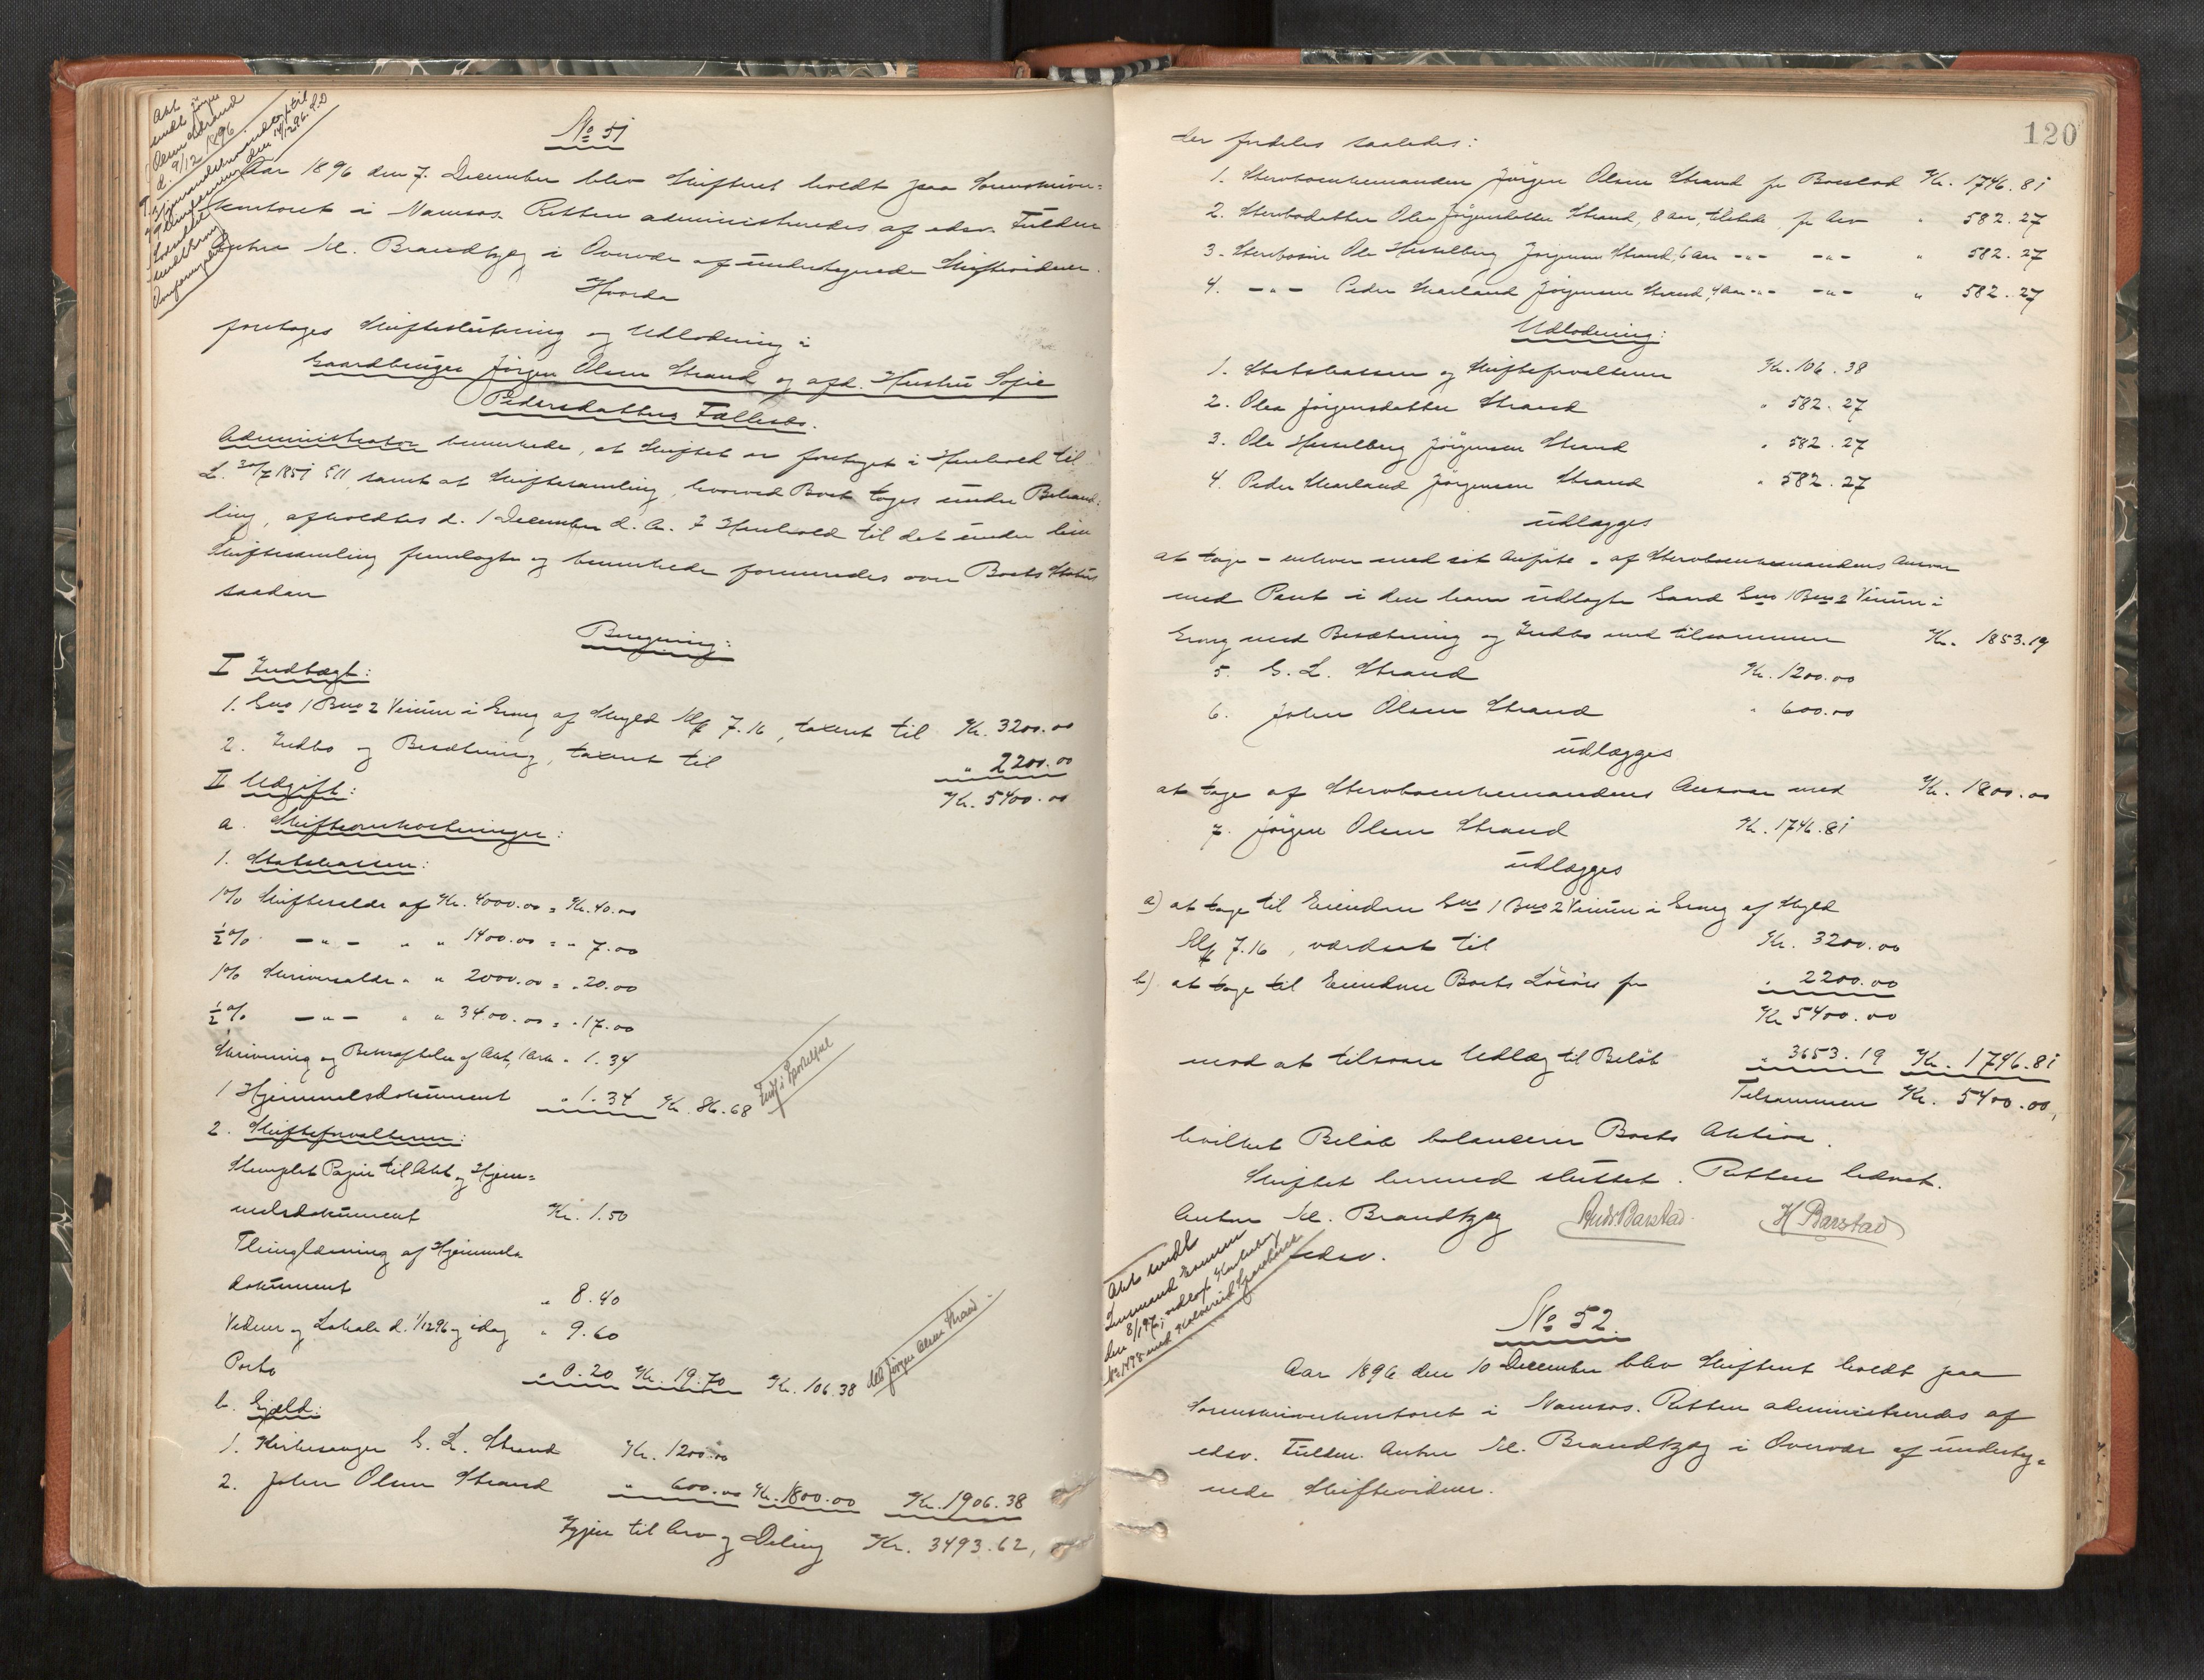 No 51
Akt
sendt Jörgen
Olsen Strand
d. 9/12 1896
Aar 1896 den 7. December blev Skifteret holdt paa Sorenskriver=
kontoret i Namsos. Retten administreredes af edsv. Fuldm.
Anton Kl. Brandtzæg i Overvær af undertegnede Skiftevidner.
Hvorda
foretoges Skifteslutning og Udlodning i
Gaardbruger Jörgen Olsen Strand og afd. Hustru Sofie
Pedersdatters Fællesbo.
Administrator bemærkede, at Skiftet er foretaget i Henhold til
L. 30/7 1851 § 11, samt at Skiftesamling, hvorved Boet toges under Behand=
ling, afholdtes d. 1 December d. A. I Henhold til det under hin
Skiftesamling fremlagte og bemærkede formeredes over Boets Status
saadan
Beregning:
I Indtægt:
1. Gno 1 Bno 2 Vium i Grong af Skyld Mk 7.16, taxeret til Kr. 3200.00
2. Indbo og Besætning, taxeret til " 2200.00
Kr. 5400.00
II Udgift:
a. Skifteomkostninger:
1. Statskassen:
1% Skiftesalær af Kr. 4000.00 = Kr. 40.00
½% -"- " " 1400.00 = " 7.00
1% Skriversalær " " 2000.00 = " 20.00
½% -"- " " 3400.00 = " 17.00
Skrivning og Bekræftelse af Akt, 1 Ark " 1.34
1 Hjemmelsdokument " 1.34 Kr. 86.68
Indf. i Sporteljnl
2. Skifteforvalteren:
Stemplet Papir til Akt og Hjem=
melsdokument Kr. 1.50
Thinglæsning af Hjemmels
dokument " 8.40
Vidner og Lokale d. 1/12 96 og idag " 9.60
Porto " 0.20 Kr. 19.70 Kr. 106.38
Jörgen Olsen Strand
b. Gjæld:
1. Kirkesanger G. L. Strand Kr. 1200.00
2. John Olsen Strand " 600.00 Kr. 1800.00 Kr. 1906.38
Igjen til Arv og Deling Kr. 3493.62,
120
der fordeles saaledes:
1. Sterboenkemanden Jörgen Olsen Strand for Boeslod Kr. 1746.81
2. Sterbodatter Olea Jörgensdatter Strand, 8 Aar, tilstede for Arv " 582.27
3. Sterbosön Ole Hesselberg Jörgensen Strand, 6 Aar -"- -"- " 582.27
4. -"- Peder Maeland Jörgensen Strand, 4 Aar -"- -"- " 582.27
Udlodning:
1. Statskassen og Skifteforvalteren Kr. 106.38
2. Olea Jörgensdatter Strand " 582.27
3. Ole Hesselberg Jörgensen Strand " 582.27
4. Peder Maeland Jörgensen Strand " 582.27
udlægges
at tage - enhver med sit Anförte - af Sterboenkemandens Ansvar
med Pant i den ham udlagte Gaard Gno 1 Bno 2 Vium i
Grong med Besætning og Indbo med tilsammen Kr. 1853.19
5. G. L. Strand Kr. 1200.00
6. John Olsen Strand " 600.00
udlægges
at tage af Sterboenkemandens Ansvar med Kr. 1800.00
7. Jörgen Olsen Strand Kr. 1746.81
udlægges
a) at tage til Eiendom Gno 1 Bno 2 Vium i Grong af Skyld
Mk 7.16, værdsat til Kr. 3200.00
b) at tage til Eiendom Boets Lösöre for " 2200.00
Kr 5400.00
mod at tilsvare Udlæg til Belöb " 3653.19 Kr. 1746.81
Tilsammen Kr. 5400.00,
hvilket Belöb balancerer Boets Aktiva.
Skiftet hermed sluttet. Retten hævet.
Anton Kl. Brandtzæg Andr Barstad. H Barstad
edsv.
Akt sendt
Lensmand
No 52.
Aar 1896 den 10 December blev Skifteret holdt paa
Sorenskriverkontoret i Namsos. Retten administreredes af
edsv. Fuldm. Anton Kl. Brandtzæg i Overvær af underteg=
nede Skiftevidner.